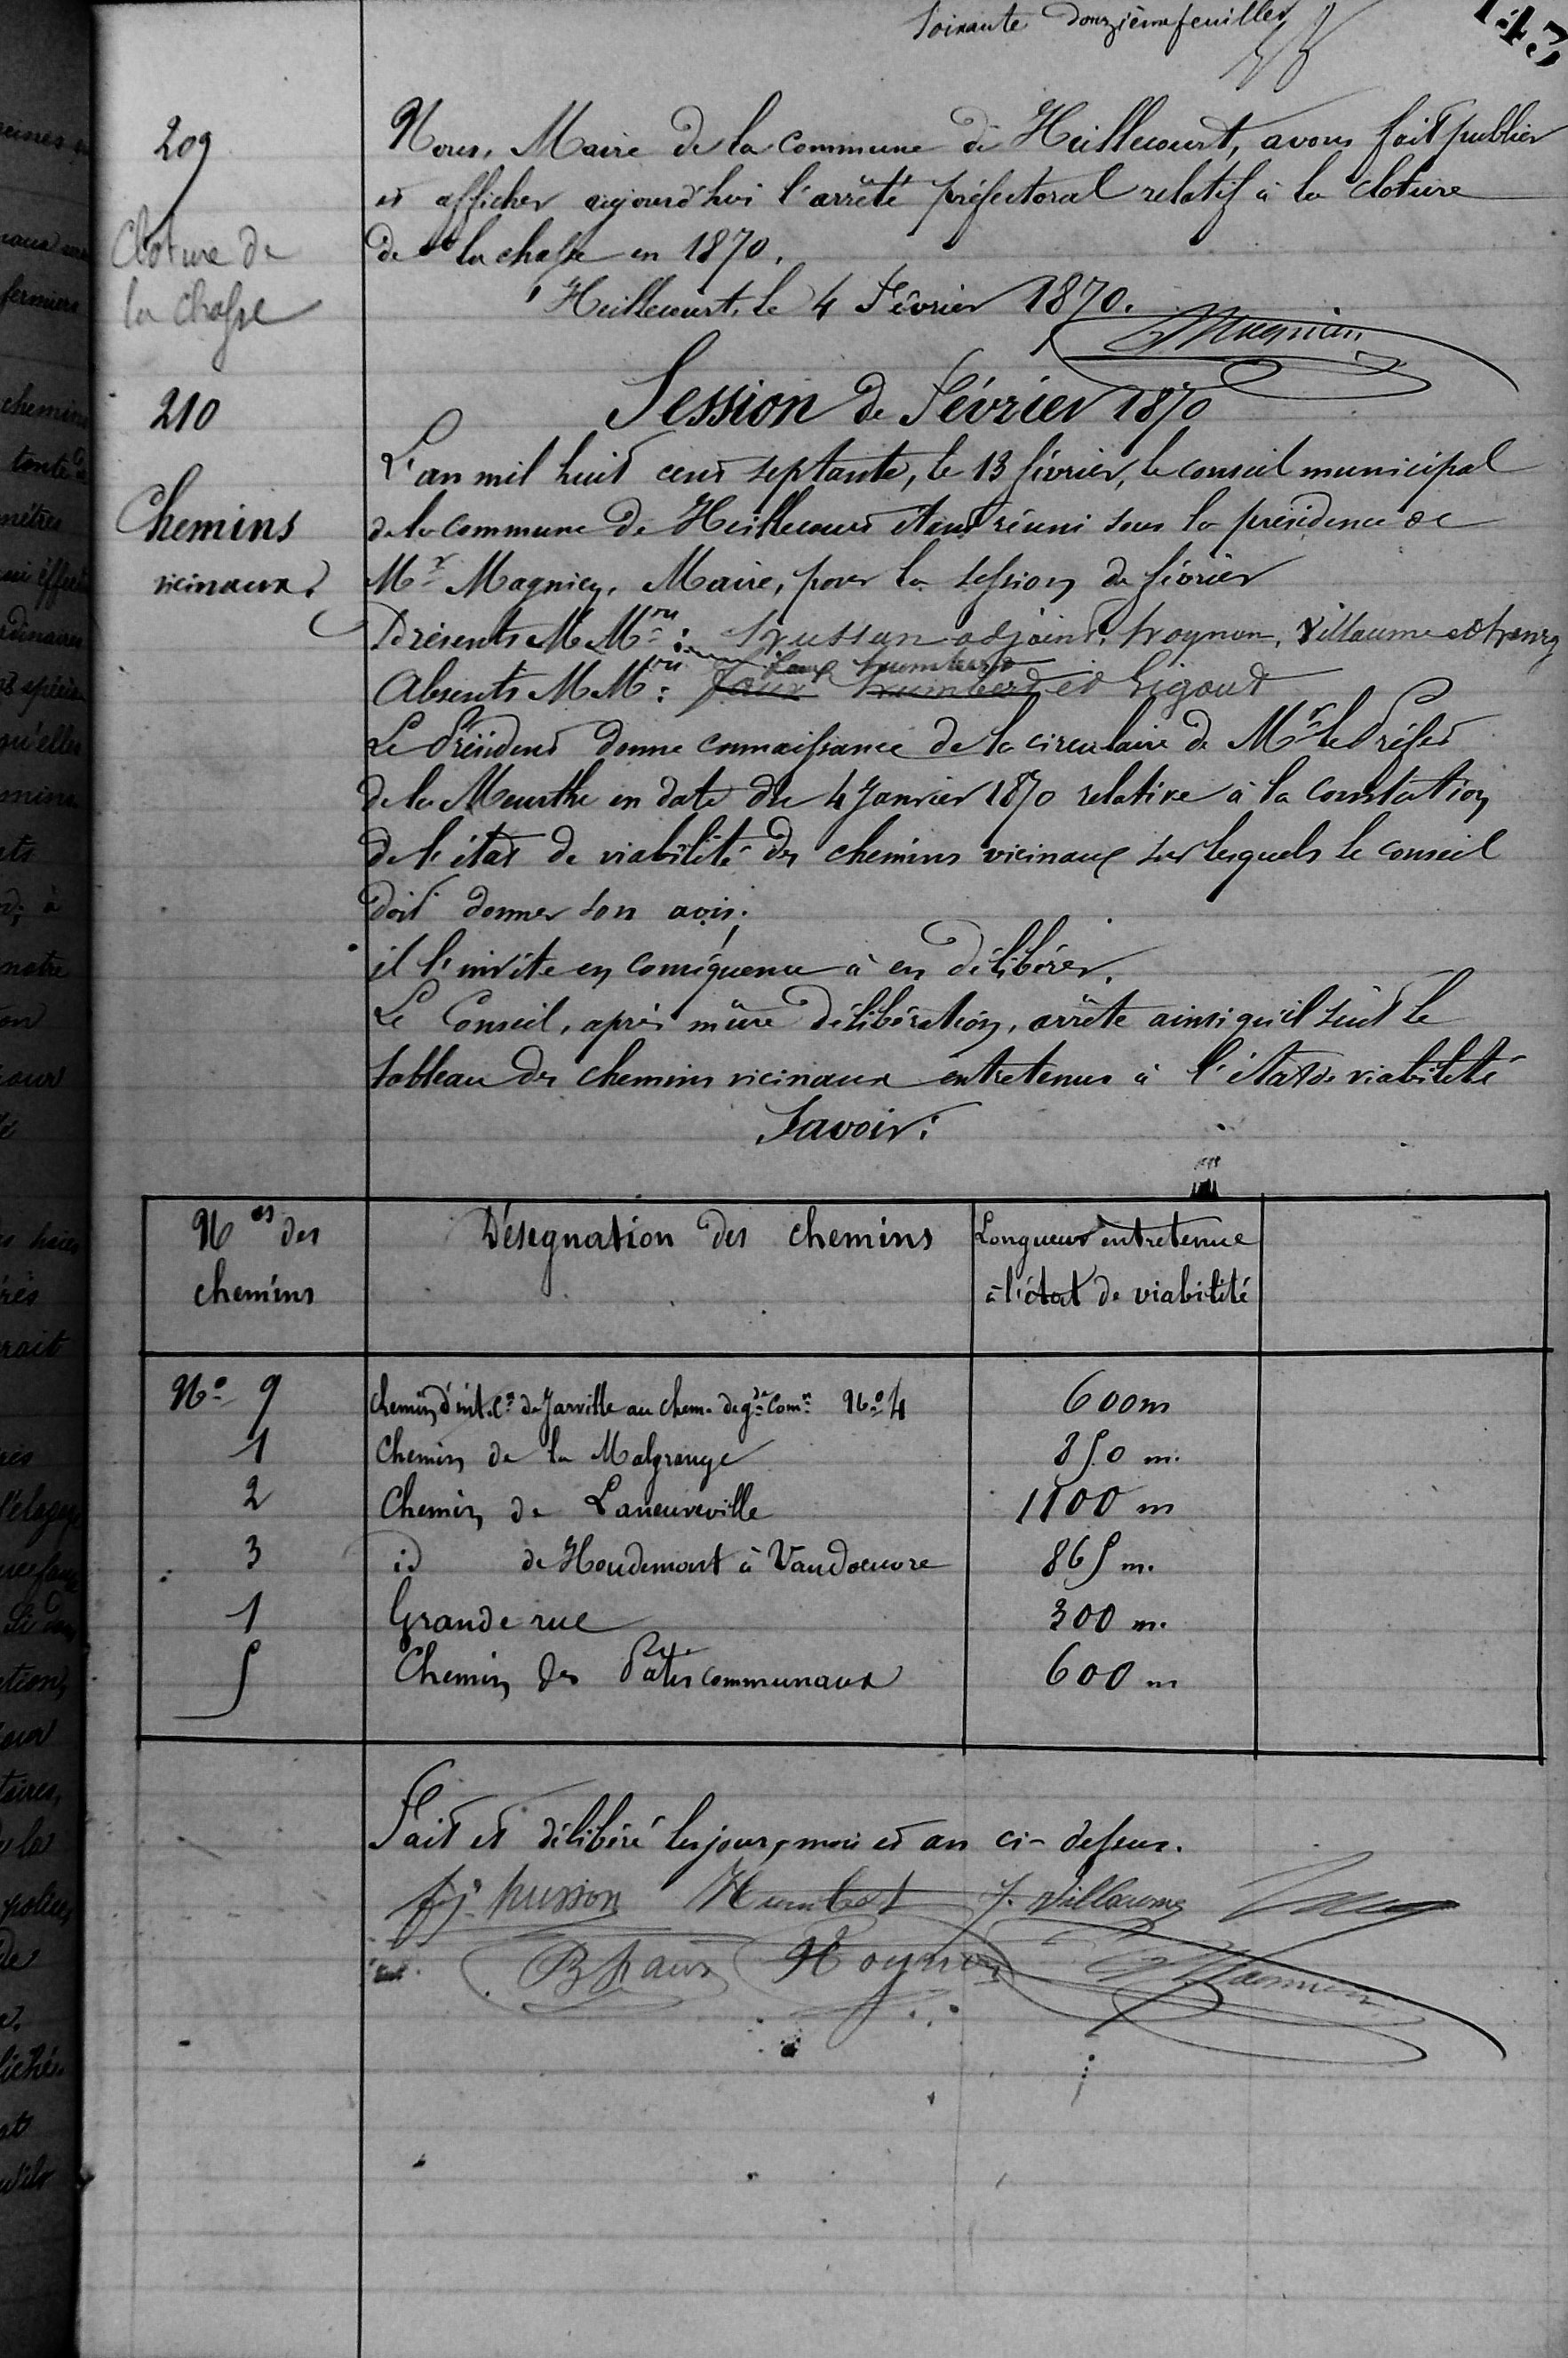 Soixante douzième feuillet
143
209
Cloture de
la chasse
Nous, Maire de la commune de Heillecourt, avons fait publier
et afficher aujourd'hui l'arrêté préfectoral relatif à la cloture
de la chasse en 1870.
Heillecourt, le 4 Février 1870.
Magnien
210
Chemins
vicinaux.
Session de Février 1870
L'an mil huit cent septante, le 13 février, le conseil municipal
de la commune de Heillecourt étant réuni sous la présidence de
Mr Magnien, Maire, pour la session de février
Présents MMrs : husson adjoint, Noynon, Villaume et
faux humbert
Absents MMrs : faux humbert et Rigout
Le Président donne connaissance de la circulaire de Mr le Préfet
de la Meurthe en date du 4 Janvier 1870 relative à la constation
de l'état de viabilité des chemins vicinaux sur lesquels le conseil
doit donner son avis;
il l'invite en conséquence à en délibérer.
Le Conseil, après mûre délibération, arrête ainsi qu'il suit le
tableau des chemins vicinaux entretenus à l'état de viabilité
Savoir:
Nos des Désegnation des chemins Longueur entretenue
chemins à l'état de viabilité
No 9 chemin d'int. Cn de Jarville au chem. de gde Comn No 4 600 m
1 Chemin de la Malgrange 850 m.
2 Chemin de Laneuveville 1100 m
3 id de Houdemont à Vandoeuvre 865 m.
1 Grande rue 300 m.
5 Chemin des Pâtis communaux 600 m
Fait et délibéré les jour, mois et an ci-dessus.
husson Humbert J. Villaume
B faux Noynon Magnien